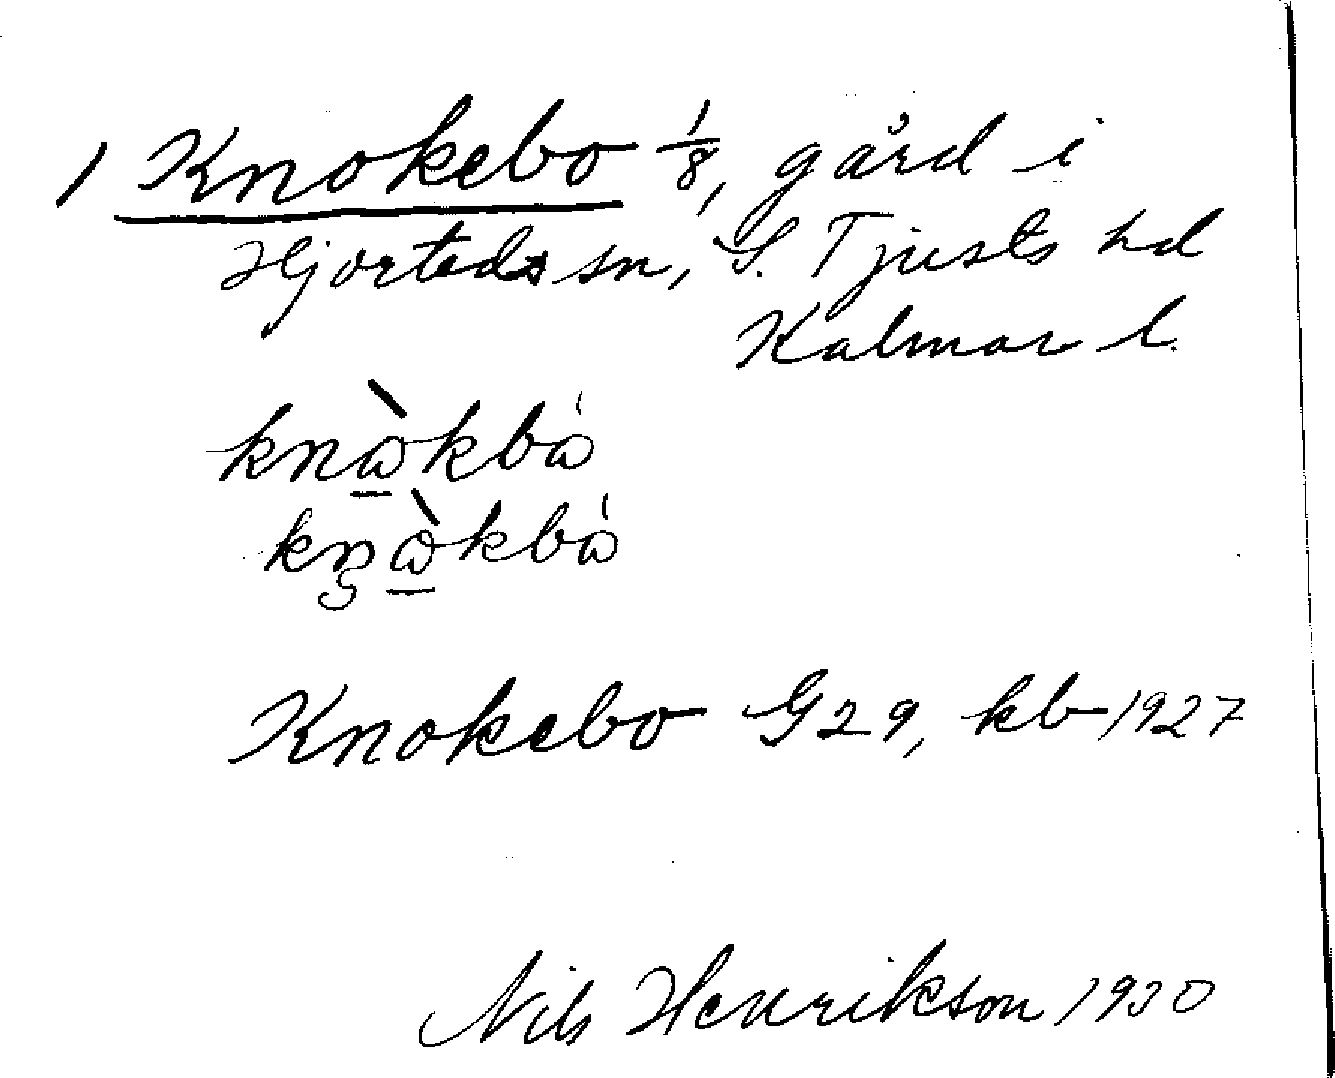 1 Knokebo 1/8, gård i
Hjorteds sn, S. Tjusts hd
Kalmar l.
knὼkbὼ
kn̡ὼkbὼ
Knokebo G29, kb 1927
Nils Henrikson 1930